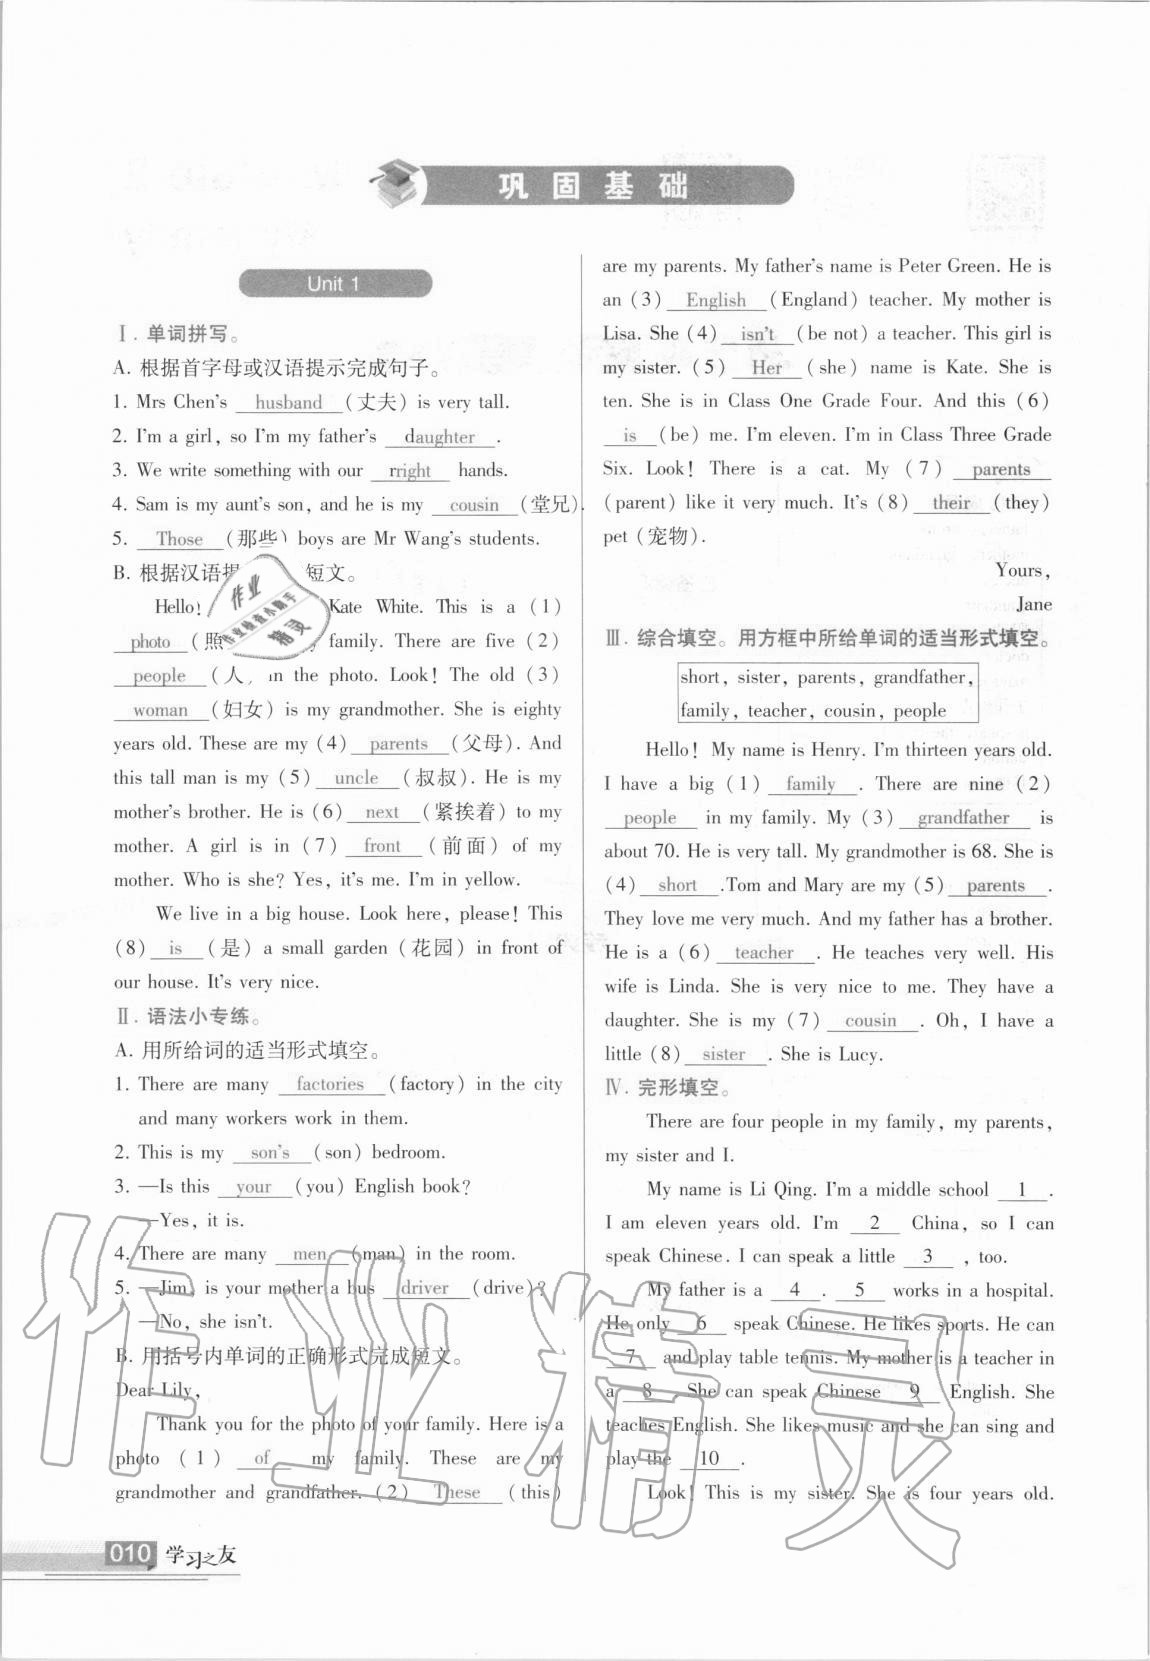 巩固基础
Unit 1
Ⅰ. 单词拼写。
A. 根据首字母或汉语提示完成句子。
1. Mrs Chen's husband (丈夫) is very tall.
2. I'm a girl, so I'm my father's daughter .
3. We write something with our rright hands.
4. Sam is my aunt's son, and he is my cousin (堂兄).
5. Those (那些) boys are Mr Wang's students.
B. 根据汉语提 短文。
Hello! Kate White. This is a (1)
photo (照 y family. There are five (2)
people (人) in the photo. Look! The old (3)
woman (妇女) is my grandmother. She is eighty
years old. These are my (4) parents (父母). And
this tall man is my (5) uncle (叔叔). He is my
mother's brother. He is (6) next (紧挨着) to my
mother. A girl is in (7) front (前面) of my
mother. Who is she? Yes, it's me. I'm in yellow.
We live in a big house. Look here, please! This
(8) is (是) a small garden (花园) in front of
our house. It's very nice.
Ⅱ. 语法小专练。
A. 用所给词的适当形式填空。
1. There are many factories (factory) in the city
and many workers work in them.
2. This is my son's (son) bedroom.
3. —Is this your (you) English book?
—Yes, it is.
4. There are many men (man) in the room.
5. —Jim, is your mother a bus driver (drive)?
—No, she isn't.
B. 用括号内单词的正确形式完成短文。
Dear Lily,
Thank you for the photo of your family. Here is a
photo (1) of my family. These are my
grandmother and grandfather. (2) These (this)
are my parents. My father's name is Peter Green. He is
an (3) English (England) teacher. My mother is
Lisa. She (4) isn't (be not) a teacher. This girl is
my sister. (5) Her (she) name is Kate. She is
ten. She is in Class One Grade Four. And this (6)
is (be) me. I'm eleven. I'm in Class Three Grade
Six. Look! There is a cat. My (7) parents
(parent) like it very much. It's (8) their (they)
pet (宠物).
Yours,
Jane
Ⅲ. 综合填空。用方框中所给单词的适当形式填空。
short, sister, parents, grandfather,
family, teacher, cousin, people
Hello! My name is Henry. I'm thirteen years old.
I have a big (1) family . There are nine (2)
people in my family. My (3) grandfather is
about 70. He is very tall. My grandmother is 68. She is
(4) short .Tom and Mary are my (5) parents .
They love me very much. And my father has a brother.
He is a (6) teacher . He teaches very well. His
wife is Linda. She is very nice to me. They have a
daughter. She is my (7) cousin . Oh, I have a
little (8) sister . She is Lucy.
Ⅳ. 完形填空。
There are four people in my family, my parents,
my sister and I.
My name is Li Qing. I'm a middle school 1 .
I am eleven years old. I'm 2 China, so I can
speak Chinese. I can speak a little 3 , too.
My father is a 4 . 5 works in a hospital.
He only 6 speak Chinese. He likes sports. He can
7 and play table tennis. My mother is a teacher in
a 8 . She can speak Chinese 9 English. She
teaches English. She likes music and she can sing and
play the 10 .
Look! This is my sister. She is four years old.
010 学习之友
作业
作业检查小助手
精灵
作业精灵